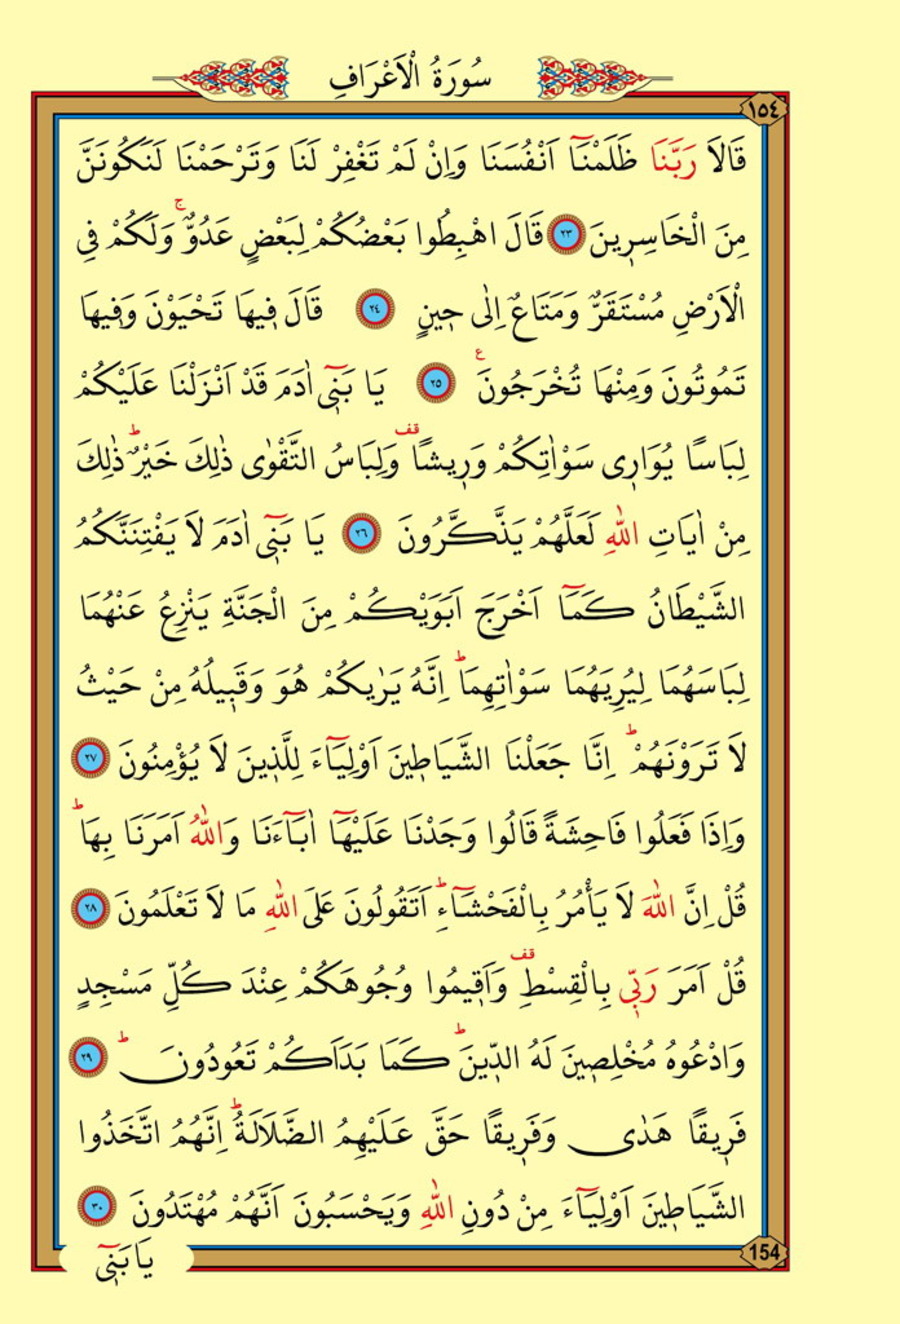 سُورَةُ الْاَعْرَافِ
١٥٤
قَالَا رَبَّنَا ظَلَمْنَٓا اَنْفُسَنَا وَاِنْ لَمْ تَغْفِرْ لَنَا وَتَرْحَمْنَا لَنَكُونَنَّ
مِنَ الْخَاسِرٖينَ ٢٣ قَالَ اهْبِطُوا بَعْضُكُمْ لِبَعْضٍ عَدُوٌّۚ وَلَكُمْ فِى
الْاَرْضِ مُسْتَقَرٌّ وَمَتَاعٌ اِلٰى حٖينٍ ٢٤ قَالَ فٖيهَا تَحْيَوْنَ وَفٖيهَا
تَمُوتُونَ وَمِنْهَا تُخْرَجُونَ ع ٢٥ يَا بَنٖٓى اٰدَمَ قَدْ اَنْزَلْنَا عَلَيْكُمْ
لِبَاسًا يُوَارٖى سَوْاٰتِكُمْ وَرٖيشًا قف وَلِبَاسُ التَّقْوٰى ذٰلِكَ خَيْرٌ ط ذٰلِكَ
مِنْ اٰيَاتِ اللّٰهِ لَعَلَّهُمْ يَذَّكَّرُونَ ٢٦ يَا بَنٖٓى اٰدَمَ لَا يَفْتِنَنَّكُمُ
الشَّيْطَانُ كَمَٓا اَخْرَجَ اَبَوَيْكُمْ مِنَ الْجَنَّةِ يَنْزِعُ عَنْهُمَا
لِبَاسَهُمَا لِيُرِيَهُمَا سَوْاٰتِهِمَا ط اِنَّهُ يَرٰيكُمْ هُوَ وَقَبٖيلُهُ مِنْ حَيْثُ
لَا تَرَوْنَهُمْ ط اِنَّا جَعَلْنَا الشَّيَاطٖينَ اَوْلِيَٓاءَ لِلَّذٖينَ لَا يُؤْمِنُونَ ٢٧
وَاِذَا فَعَلُوا فَاحِشَةً قَالُوا وَجَدْنَا عَلَيْهَٓا اٰبَٓاءَنَا وَاللّٰهُ اَمَرَنَا بِهَا ط
قُلْ اِنَّ اللّٰهَ لَا يَأْمُرُ بِالْفَحْشَٓاءِ ط اَتَقُولُونَ عَلَى اللّٰهِ مَا لَا تَعْلَمُونَ ٢٨
قُلْ اَمَرَ رَبّٖى بِالْقِسْطِ قف وَاَقٖيمُوا وُجُوهَكُمْ عِنْدَ كُلِّ مَسْجِدٍ
وَادْعُوهُ مُخْلِصٖينَ لَهُ الدّٖينَ ط كَمَا بَدَاَكُمْ تَعُودُونَ ط ٢٩
فَرٖيقًا هَدٰى وَفَرٖيقًا حَقَّ عَلَيْهِمُ الضَّلَالَةُ ط اِنَّهُمُ اتَّخَذُوا
الشَّيَاطٖينَ اَوْلِيَٓاءَ مِنْ دُونِ اللّٰهِ وَيَحْسَبُونَ اَنَّهُمْ مُهْتَدُونَ ٣٠
154
يَا بَنٖٓى